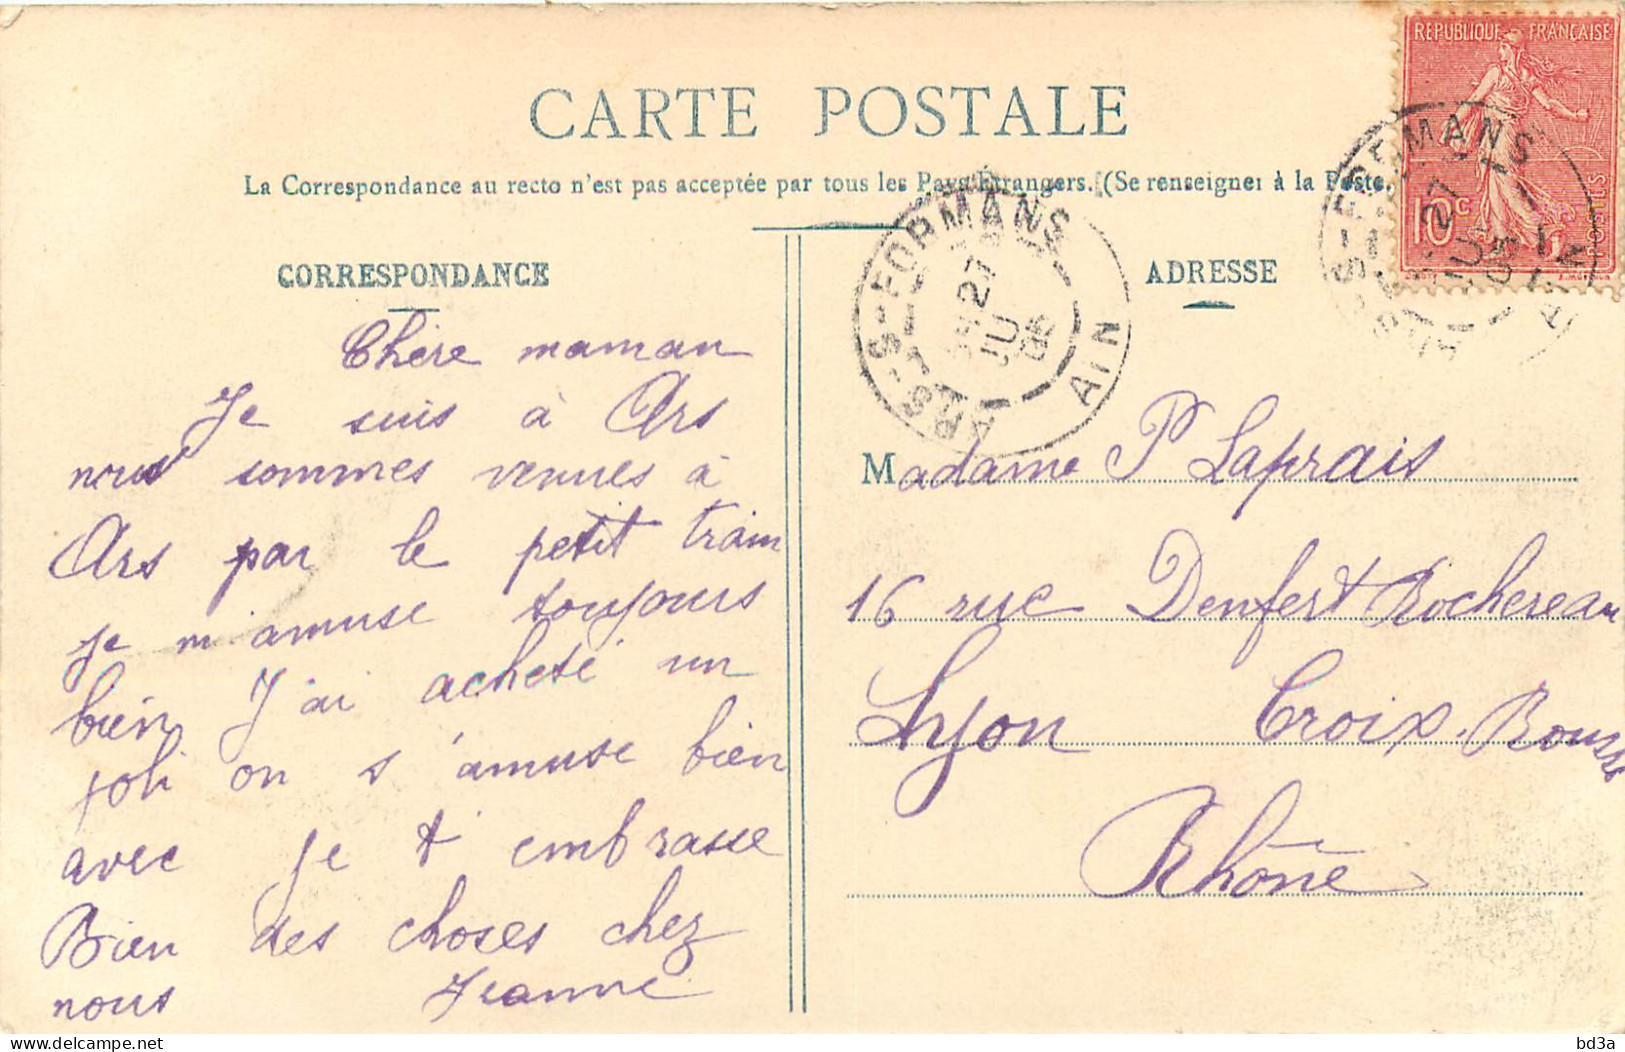 RÉPUBLIQUE FRANÇAISE
10c
POSTES
CARTE POSTALE
La Correspondance au recto n'est pas acceptée par tous les Pays Etrangers. (Se renseigner à la Poste.
CORRESPONDANCE
Chère maman
Je suis à Ars
nous sommes venues à
Ars par le petit train
je m'amuse toujours
bien J'ai acheté un
joli on s'amuse bien
avec je t'embrasse
Bien des choses chez
nous Jeanne
ARS-S-FORMANS
27
JU
AIN
ARS-S-FORMANS
27
JU
05
AIN
ADRESSE
Madame P Laprais
16 rue Denfert Rochereau
Lyon Croix-Rousse
Rhône
bd3a